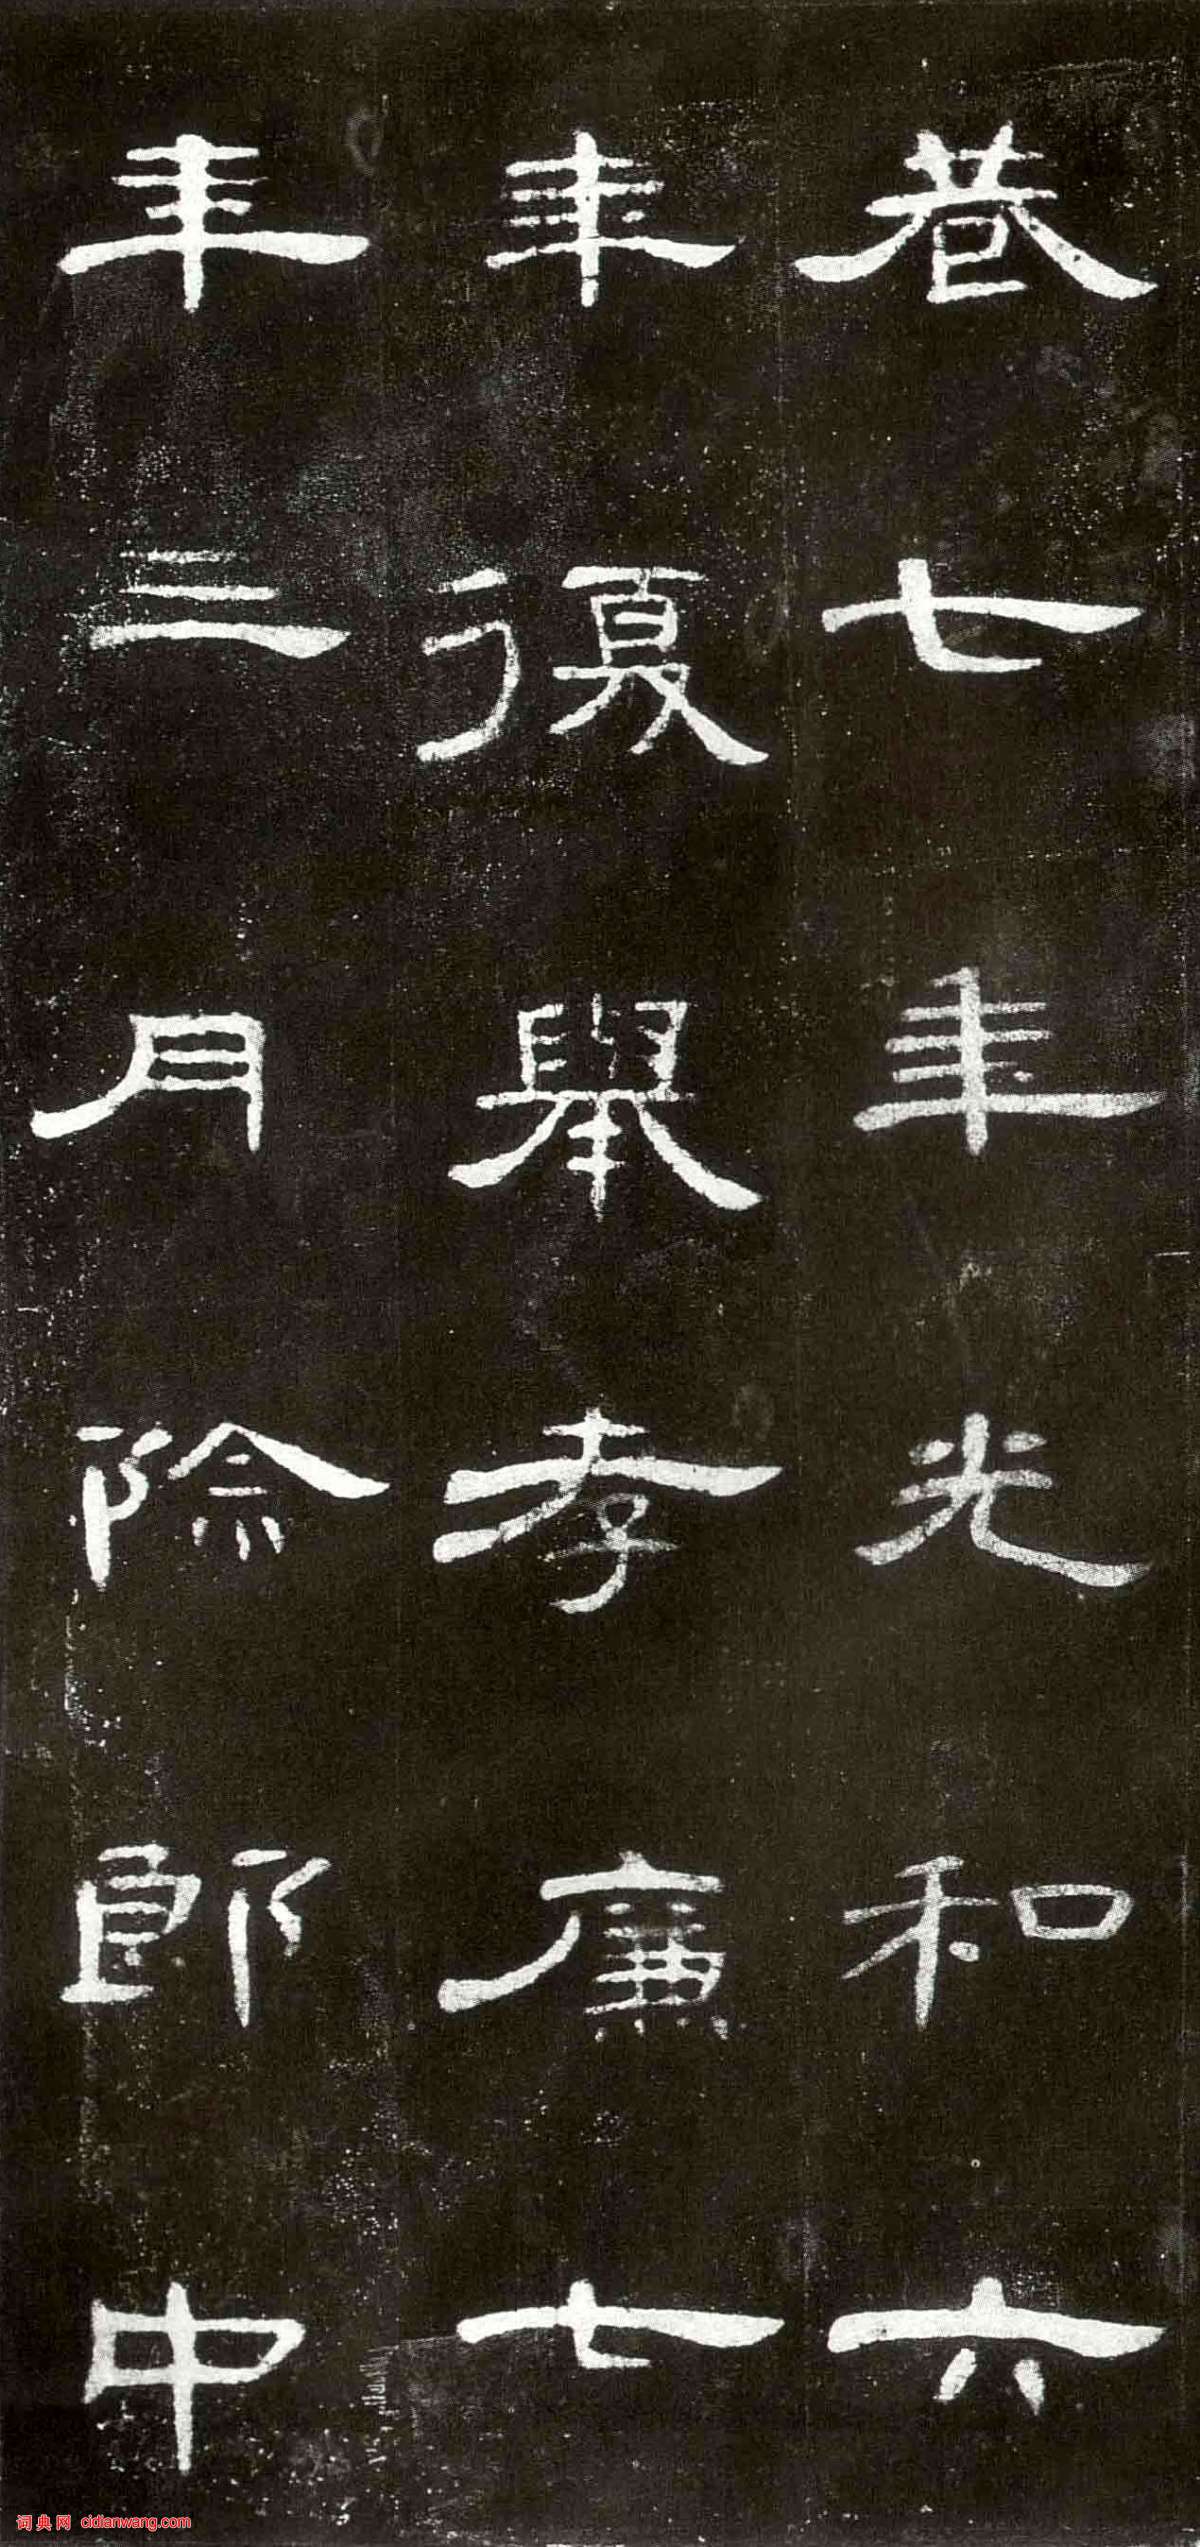 巷七年光和六
年復舉孝廉七
年三月除郎中
词典网 cidianwang.com